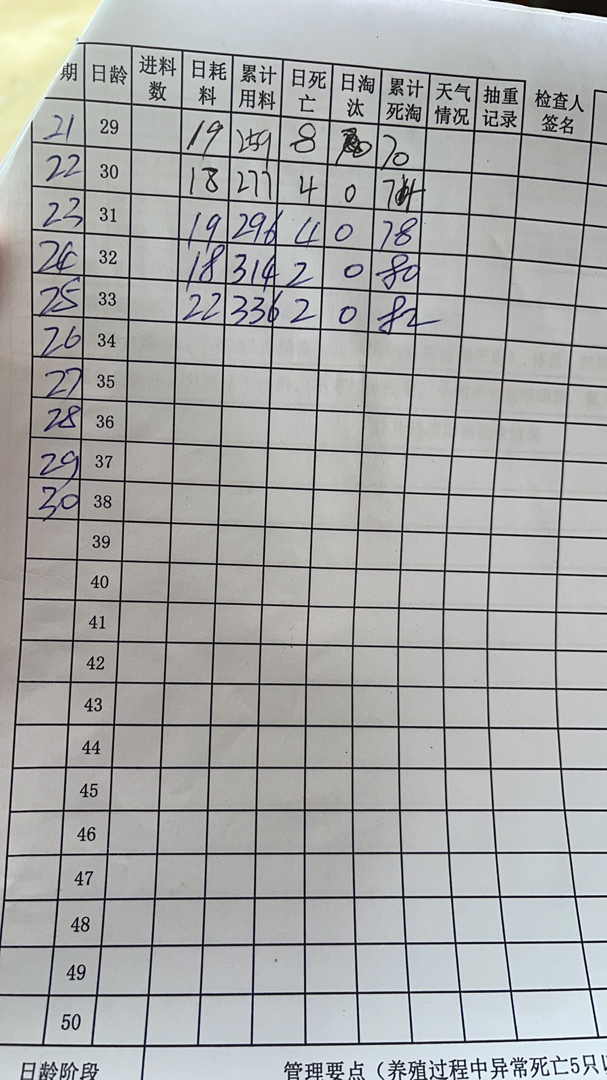 期 日龄 进料数 日耗料 累计用料 日死亡 日淘汰 累计死淘 天气情况 抽重记录 检查人签名
21 29 19 259 8 70
22 30 18 277 4 0 74
23 31 19 296 4 0 78
24 32 18 314 2 0 80
25 33 22 336 2 0 82
26 34
27 35
28 36
29 37
30 38
39
40
41
42
43
44
45
46
47
48
49
50
日龄阶段 管理要点（养殖过程中异常死亡5只